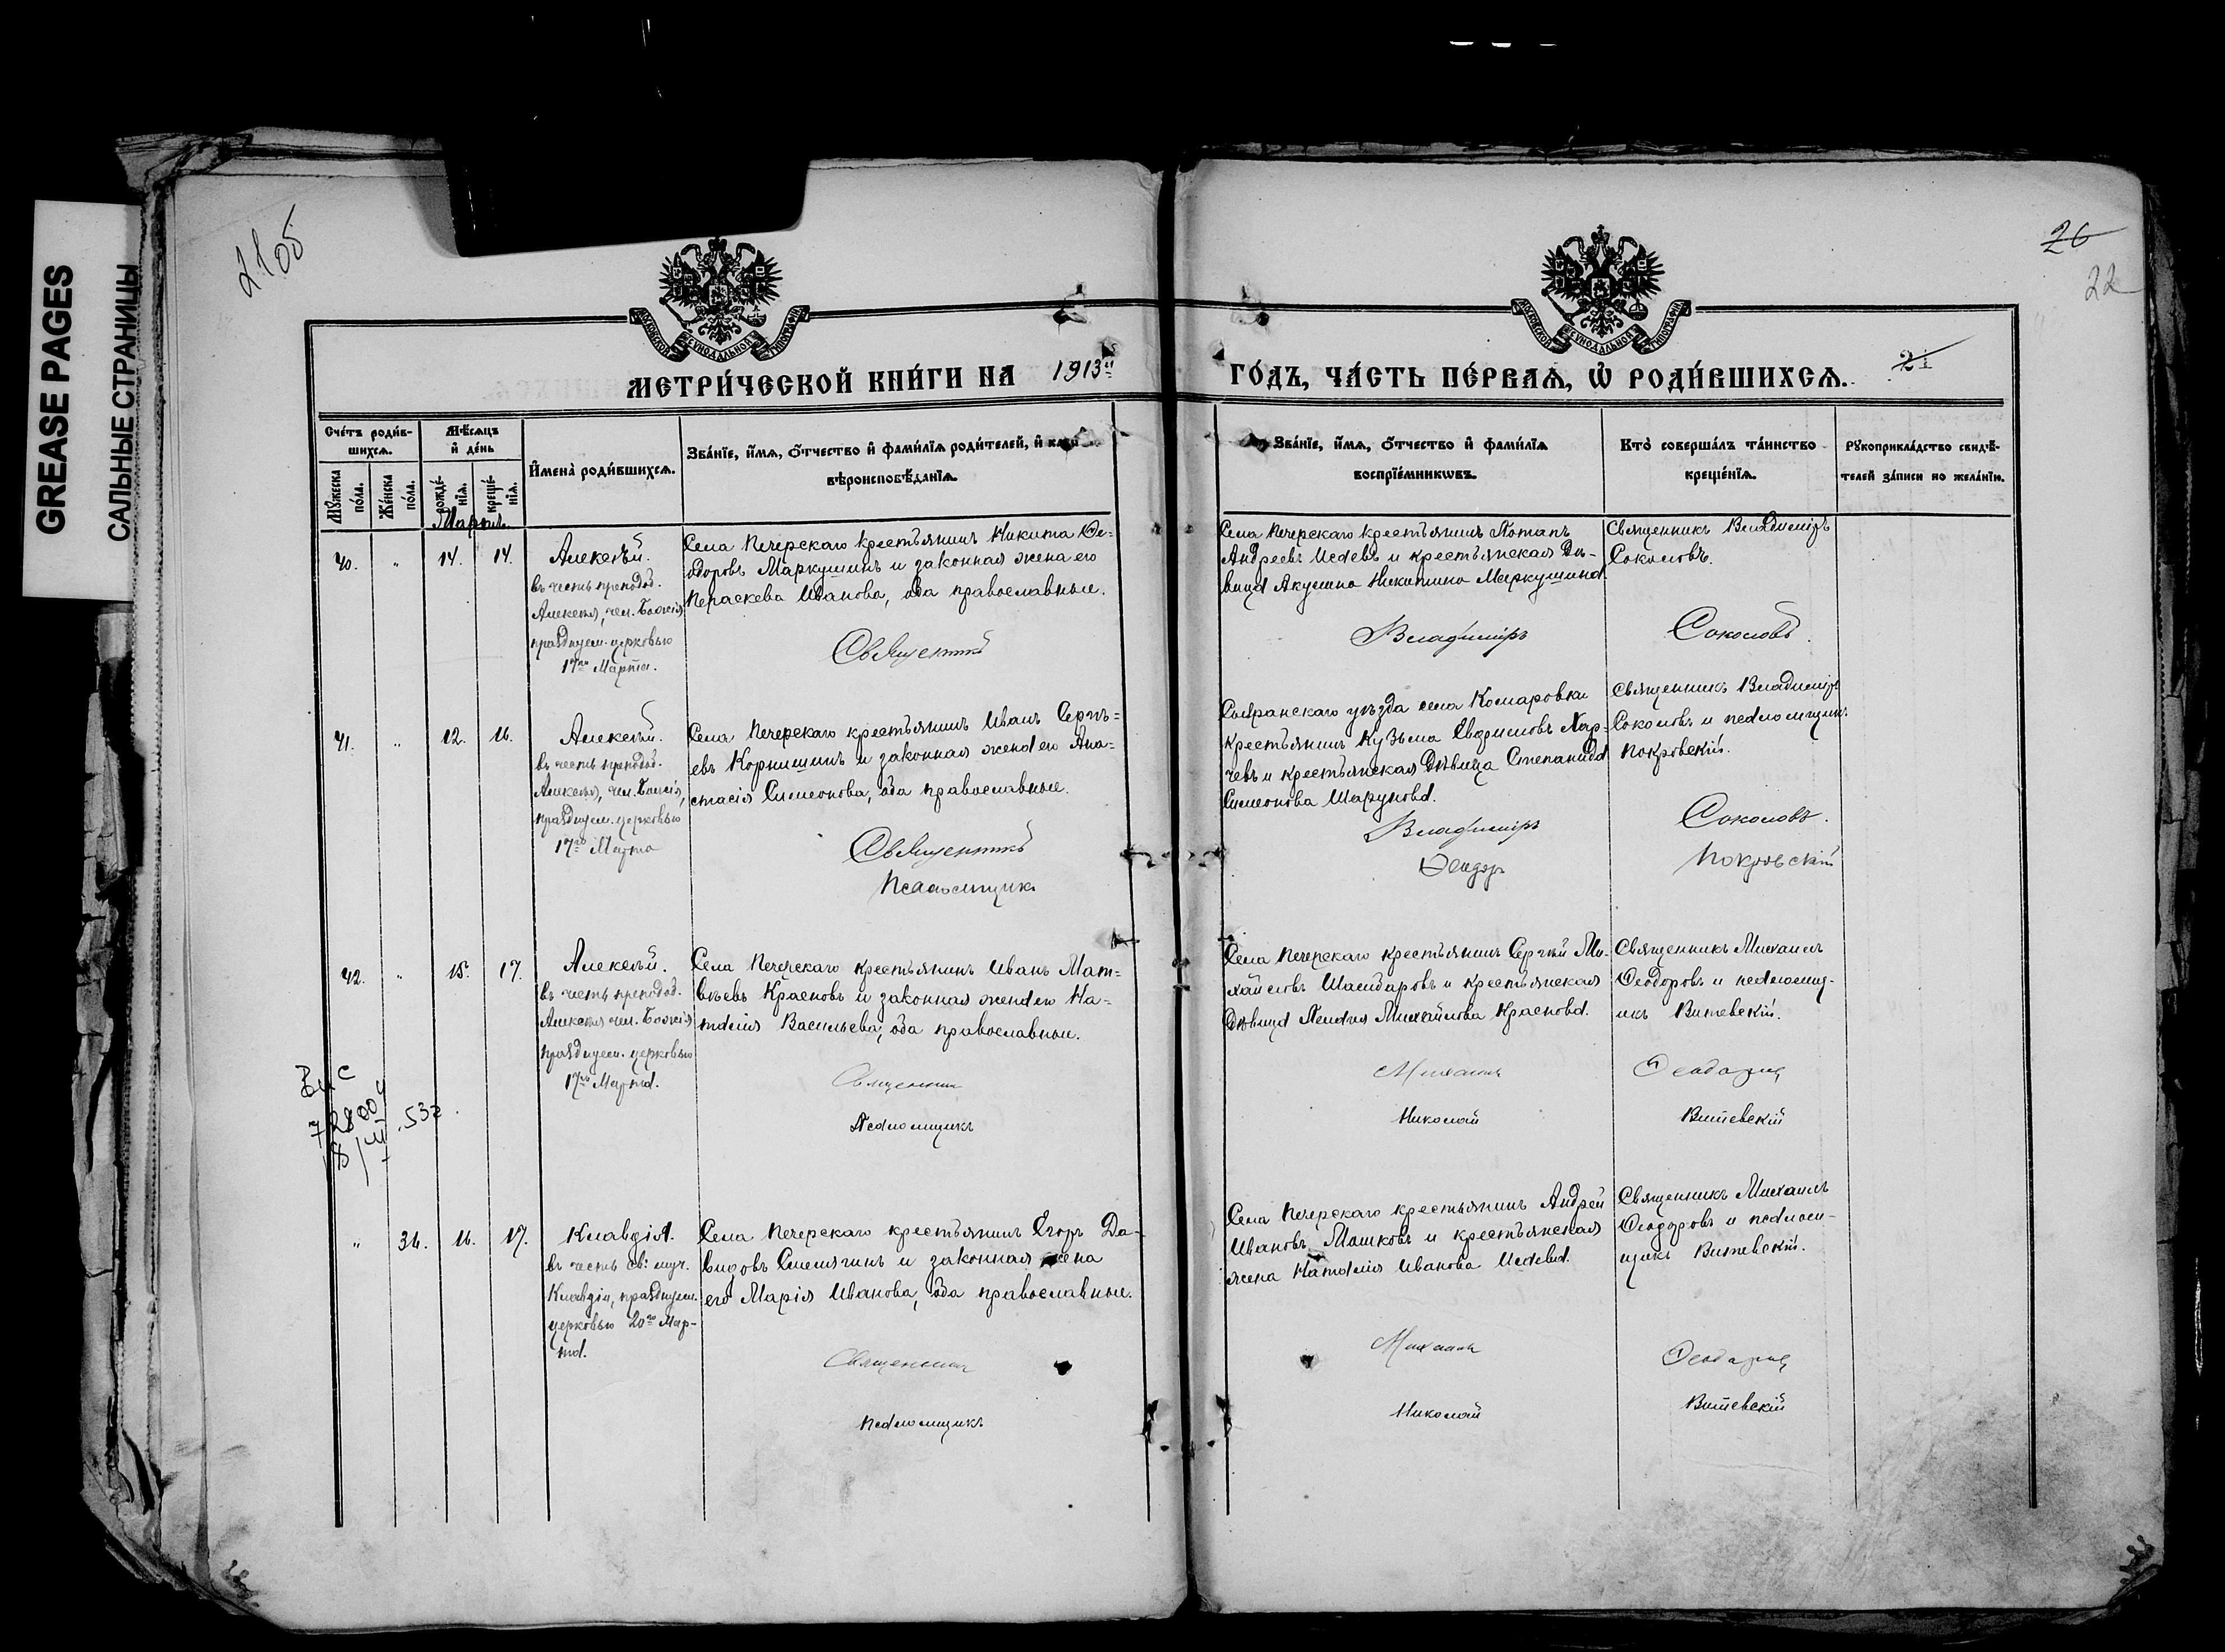 GREASE PAGES
САЛЬНЫЕ СТРАНИЦЫ
21об
26
22
МОСКОВСКОЙ СѴНОДАЛЬНОЙ ТИПОГРАФІИ
МОСКОВСКОЙ СѴНОДАЛЬНОЙ ТИПОГРАФІИ
МЕТРИ́ЧЕСКОЙ КНИ́ГИ НА 1913й ГО́ДЪ, ЧА́СТЬ ПЕ́РВАѦ, Ѡ҆ РОДИ́ВШИХСѦ.
21
Сче́тъ роди́в-
шихсѧ.
Мѣ́сѧцъ
и҆ де́нь
Мꙋ́жеска
по́ла.
Же́нска
по́ла.
рожде́-
нїѧ.
креще́-
нїѧ.
И҆мена̀ роди́вшихсѧ.
Зва́нїе, и҆́мѧ, ѻ҆́тчество и҆ фами́лїѧ роди́телей, и҆
вѣроисповѣ́данїѧ.
Зва́нїе, и҆́мѧ, ѻ҆́тчество и҆ фами́лїѧ
воспрїе́мникѡвъ.
Кто̀ соверша́лъ та́инство
креще́нїѧ.
Рꙋкоприкла́дство свидѣ́-
телей за́писи по жела́нїю.
Мартъ.
40. " 14. 14.
Алексѣй.
въ честь преподоб.
Алексѣя, чел. Божія
празднуем. церковью
17го Марта.
Села Печерскаго крестьянинъ Никита Ѳе-
одоровъ Маркушинъ и законная жена его
Параскева Иванова, оба православные.
Священникъ
Села Печерскаго крестьянинъ Потапъ
Андреевъ Исаевъ и крестьянская дѣ-
вица Акулина Никитина Маркушина.
Владиміръ
Священникъ Владиміръ
Соколовъ.
Соколовъ.
41. " 12. 16.
Алексѣй.
въ честь преподоб.
Алексѣя, чел. Божія,
празднуем. церковью
17го Марта
Села Печерскаго крестьянинъ Иванъ Сергѣ-
евъ Корнишинъ и законная жена его Ана-
стасія Симеонова, оба православные.
Священникъ
Псаломщикъ
Сызранскаго уѣзда села Комаровки
крестьянинъ Кузьма Евфимовъ
чевъ и крестьянская дѣвица Степанида
Симеонова Шарунова.
Владиміръ
Ѳеодоръ
Священникъ Владиміръ
Соколовъ и псаломщикъ
Покровскій.
Соколовъ.
Покровскій
42. " 15. 17.
Алексѣй.
въ честь преподоб.
Алексѣя чел. Божія
празднуем. церковью
17го Марта.
Села Печерскаго крестьянинъ Иванъ Мат-
вѣевъ Красновъ и законная жена его На-
талія Васильева, оба православные.
Священникъ
Псаломщикъ
Села Печерскаго крестьянинъ Сергѣй Ми-
хайловъ Шалдаровъ и крестьянская
дѣвица Михайлова Краснова.
Михаилъ
Николай
Священникъ Михаилъ
Ѳеодоровъ и псаломщ-
икъ Витевскій.
Ѳеодоровъ
Витевскій
" 36. 16. 17.
Клавдія.
въ честь св: муч.
Клавдіи, празднуем.
церковью 20го Мар-
та.
Села Печерскаго крестьянинъ Егоръ Да-
видовъ Смелягинъ и законная жена
его Марія Иванова, оба православные.
Священникъ
Псаломщикъ
Села Печерскаго крестьянинъ Андрей
Ивановъ Машковъ и крестьянская
жена Наталія Иванова Исаева.
Михаилъ
Николай
Священникъ Михаилъ
Ѳеодоровъ и псалом-
щикъ Витевскій.
Ѳеодоровъ
Витевскій